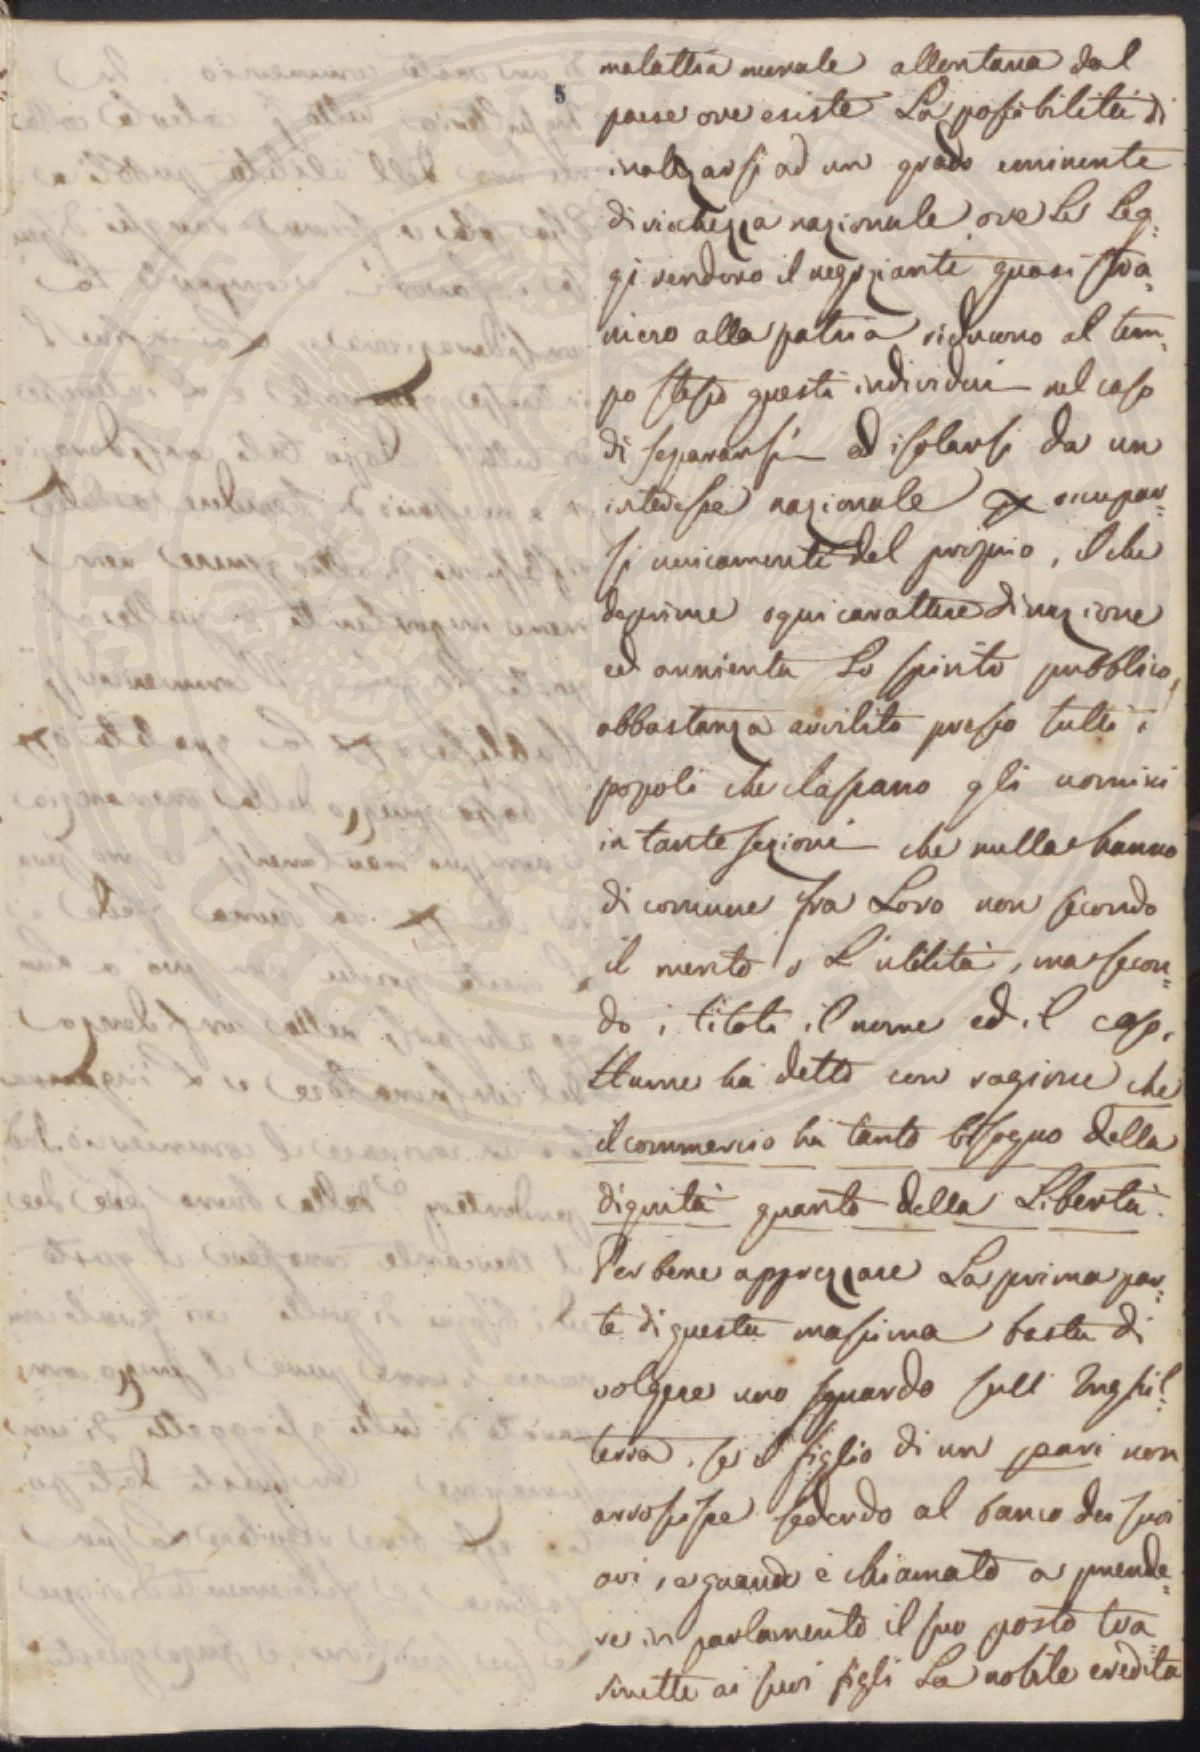 5
malattia morale allontana dal
paese ove esiste La possibilità di
inalzarsi ad un grado eminente
di ricchezza nazionale ove Le Leg-
gi rendono il negoziante quasi stra-
niero alla patria riducono al tem-
po stesso questi individui nel caso
di separarsi ed isolarsi da un
interesse nazionale occupar-
si unicamente del proprio, il che
deprime ogni carattere di nazione
ed annienta Lo spirito pubblico,
abbastanza avvilito presso tutti i
popoli che classano gli uomini
in tante sezioni che nulla hanno
di comune fra Loro non secondo
il merito o L'utilità, ma secon-
do i titoli il nome ed il caso.
Hume ha detto con ragione che
il commercio ha tanto bisogno della
dignità quanto della Libertà.
Per bene apprezzare La prima par-
te di questa massima basta di
volgere uno sguardo sull Inghil-
terra, se il figlio di un pari non
arrossisse sedendo al banco dei suoi
avi, e quando è chiamato a prende-
re in parlamento il suo posto tra
smette ai suoi figli La nobile eredita